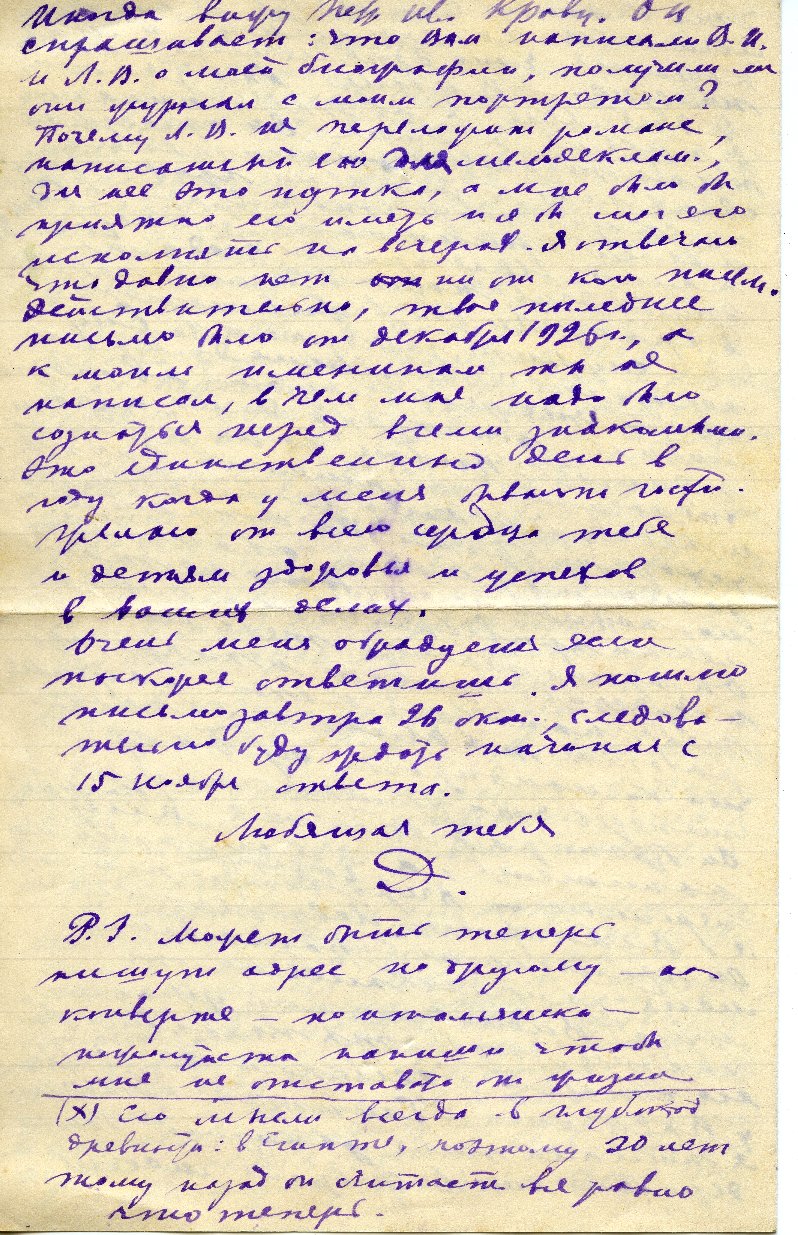 Иногда вижу Пет. Ив. Кравц. Он
спрашивает: что Вам написали В. И.
и Л. В. о моей биографии, получили ли
они журнал с моим портретом?
Почему Л. В. не переложит романс,
написанный ею для мелодеклам.,
для нее это нужно, а мне было бы
приятно его иметь и я бы мог его
исполнять на вечерах. Я отвечаю
что давно нет ни от кого писем.
Действительно, твое последнее
письмо было от декабря 1926 г., а
к моим именинам ты не
написал, в чем мне надо было
сознаться перед всеми знакомыми.
Это единственный день в
году когда у меня бывают гости.
Желаю от всего сердца тебе
и детям здоровья и успехов
в ваших делах.
Очень меня обрадуешь если
поскорее ответишь. Я пошлю
письмо завтра 26 окт., следова-
тельно буду ждать начиная с
15 ноября ответа.
Любящая тебя
Д.
P. S. Может быть теперь
пишут адрес по другому — на
конверте — по итальянски —
пожалуйста напиши чтобы
мне не отставать от жизни
(X) Его мысли всегда в глубокой
древности: в Египте, поэтому 20 лет
тому назад он считает все равно
что теперь.